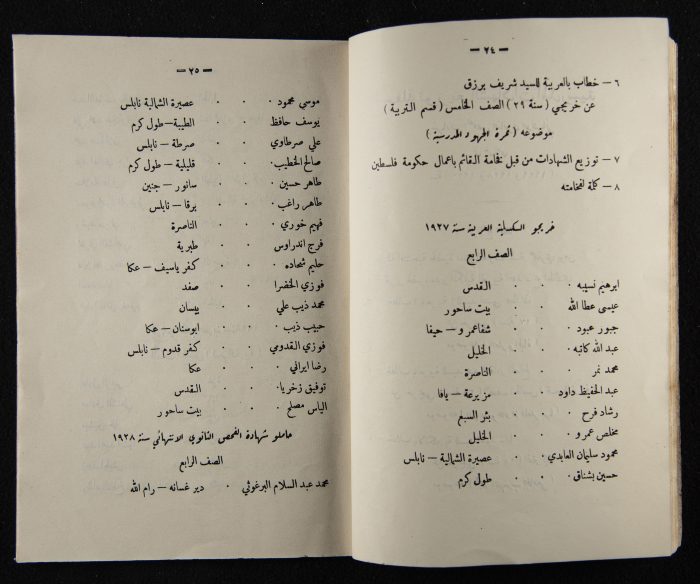 — ٢٤ —
٦ — خطاب بالعربية للسيد شريف برزق
عن خريجي (سنة ٢٩) الصف الخامس (قسم التربية)
موضوعه (ثمرة الجهود المدرسية)
٧ — توزيع الشهادات من قبل فخامة القائم باعمال حكومة فلسطين
٨ — كلمة لفخامته
خريجو الكلية العربية سنة ١٩٢٧
الصف الرابع
ابرهيم نسيبه . . . القدس
عيسى عطا الله . . . بيت ساحور
جبور عبود . . . شفاعمرو — حيفا
عبد الله كاتبه . . . الخليل
محمد نمر . . . الناصرة
عبد الحفيظ داود . . . مزيرعة — يافا
رشاد فرح . . . بئر السبع
مخلص عمرو . . . الخليل
محمود سليمان العابدي . . عصيرة الشمالية — نابلس
حسين بشناق . . . طول كرم
— ٢٥ —
موسى محمود . . . عصيرة الشمالية نابلس
يوسف حافظ . . . الطيبة — طول كرم
علي صرطاوي . . . صرطة — نابلس
صالح الخطيب . . . قليلية — طول كرم
طاهر حسين . . . سانور — جنين
طاهر راغب . . . برقا — نابلس
فهيم خوري . . . الناصرة
فرج اندراوس . . . طبرية
حليم شحاده . . . كفر ياسيف — عكا
فوزي الخضرا . . . صفد
محمد ذيب علي . . . بيسان
حبيب ذيب . . . ابوسنان — عكا
فوزي القدومي . . . كفر قدوم — نابلس
رضا ايراني . . . عكا
توفيق زخريا . . . القدس
الياس مصلح . . . بيت ساحور
حاملو شهادة الفحص الثانوي الانتهائي سنة ١٩٢٨
الصف الرابع
محمد عبد السلام البرغوثي . دير غسانه — رام الله